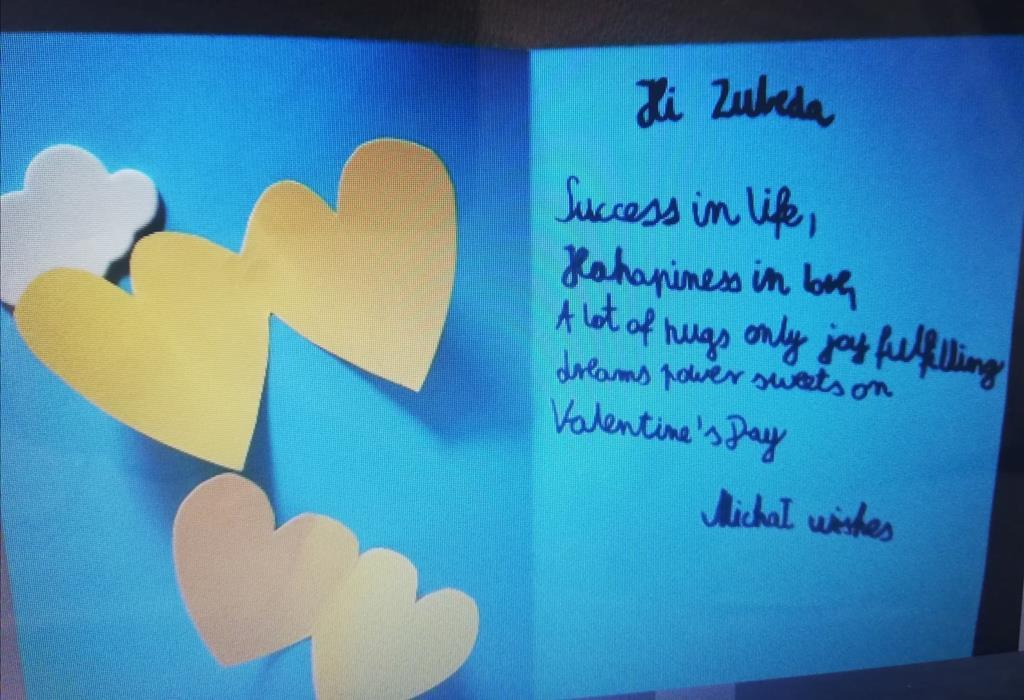 Hi Zubeda
Success in life,
Hahapiness in love,
A lot of hugs only joy fulfilling
dreams power sweets on
Valentine's Day
Michał wishes